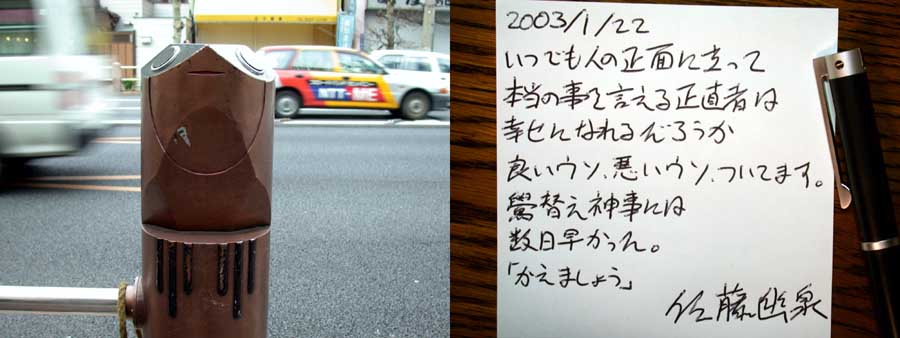 NTT-ME
2003/1/22
いつでも人の正面に立って
本当の事を言える正直者は
幸せになれるだろうか
良いウソ、悪いウソ、ついてます。
鷽替え神事には
数日早かった。
「かえましょう」
佐藤幽泉